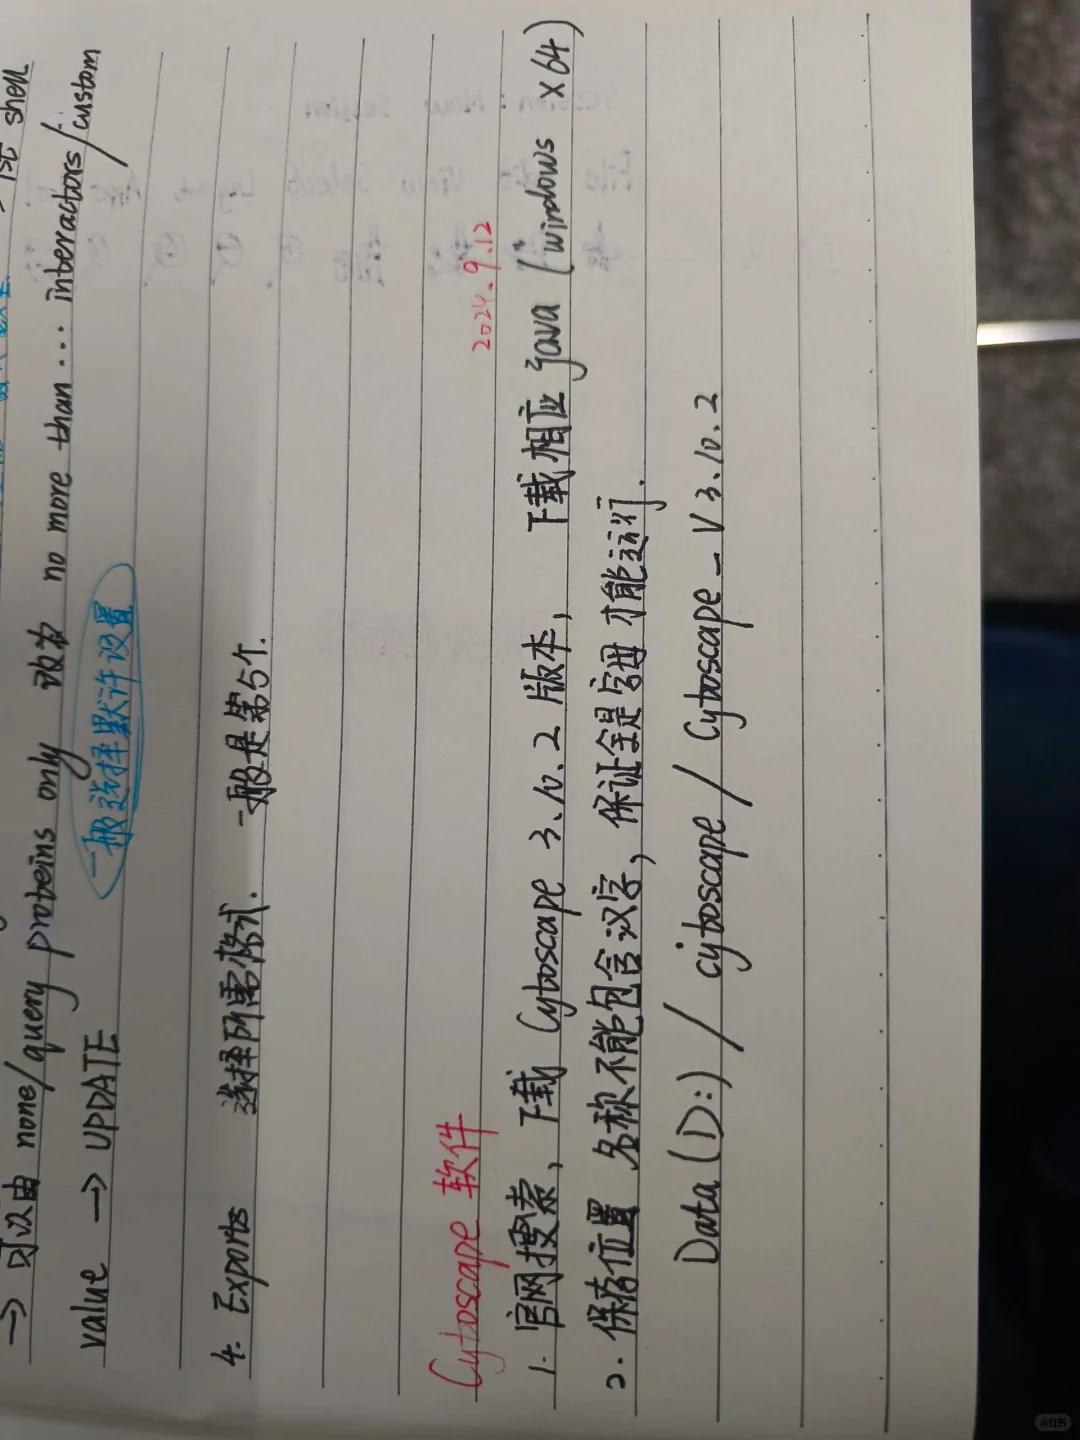 → 1st shell
→ 可以由 none/query proteins only 改为 no more than ... interactors/custom
value → UPDATE
一般选择默许设置
4. Exports 选择所需格式. 一般是第5个.
2024.9.12
Cytoscape 软件
1. 官网搜索, 下载 Cytoscape 3.10.2 版本, 下载相应 java (windows x64)
2. 保存位置 名称不能包含汉字, 保证全是字母才能运行.
Data(D:) / cytoscape / Cytoscape_V3.10.2